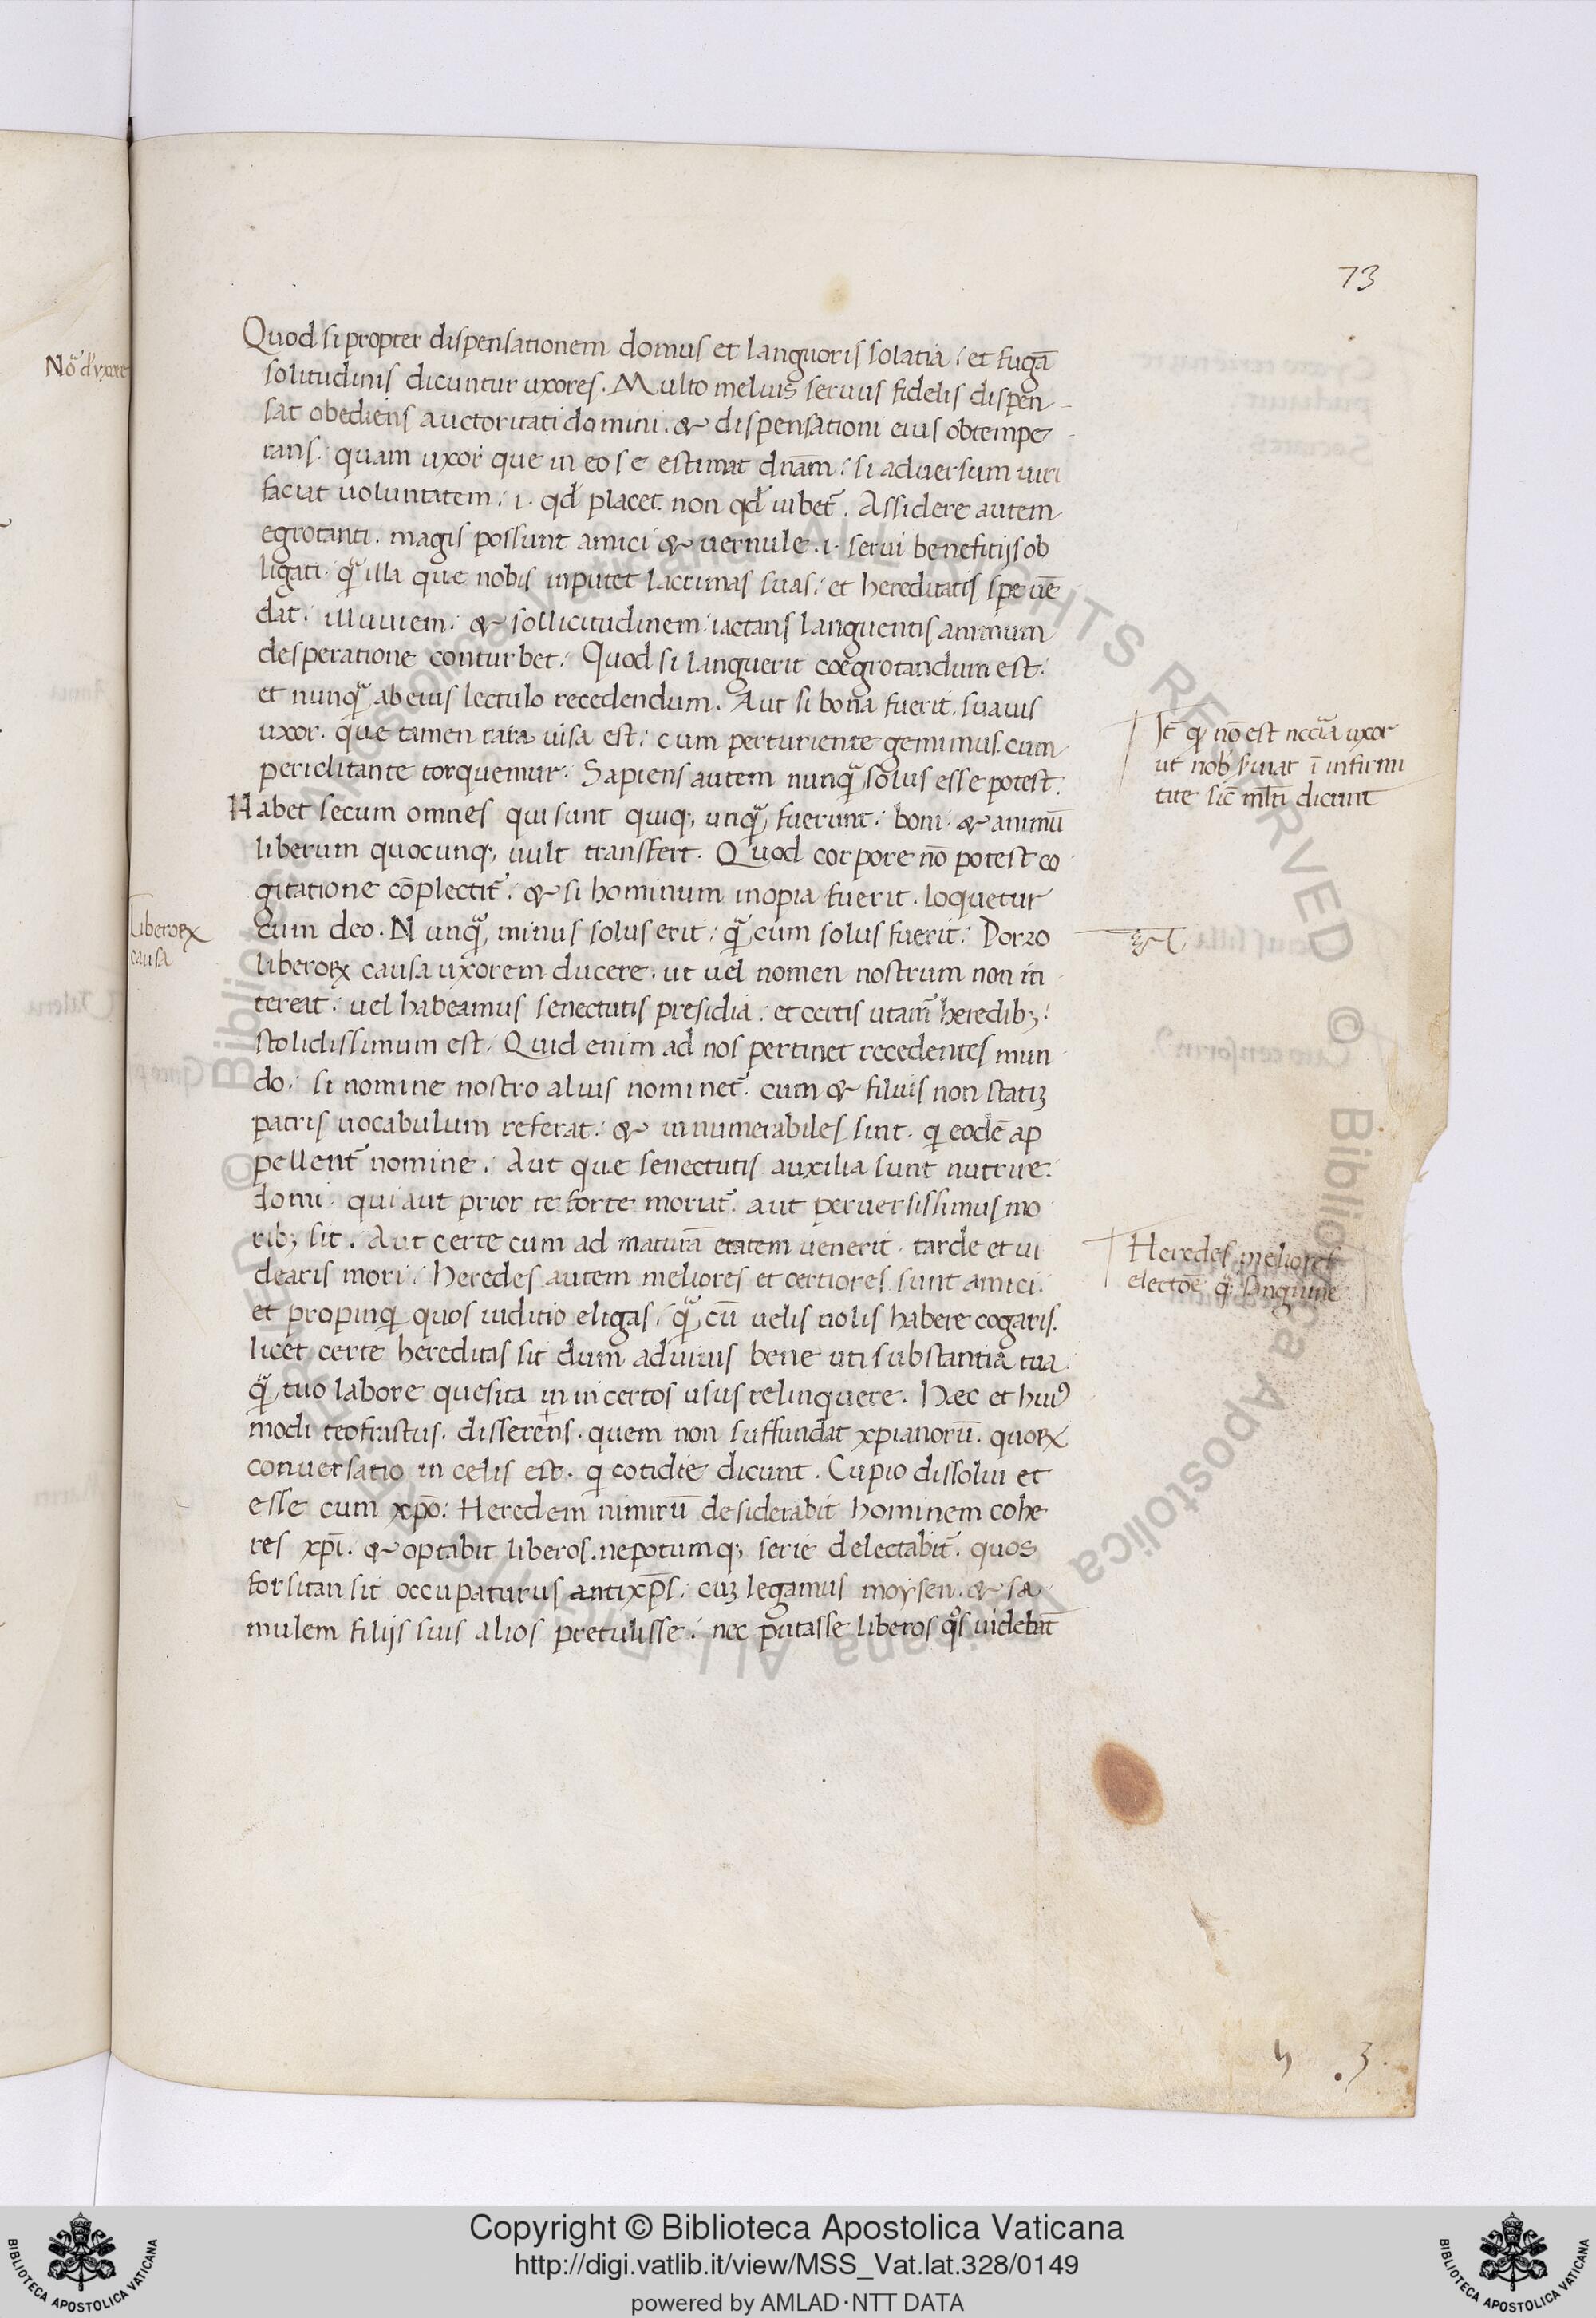 73
Quod si propter dispensationem domus et languoris solatia: et fugā
solitudinis dicuntur uxores. Multo melius seruus fidelis dispen
sat obediens auctoritati domini. & dispensationi eius obtempe
rans. quam uxor que in eo se estimat dn̄am: si aduersum uiri
faciat uoluntatem: .i. qđ placet. non qđ iubet̄. Assidere autem
egrotanti. magis possunt amici & uernule .i. serui benefitijs ob
ligati. qͣ illa que nobis inputet lacrimas suas: et hereditatis spe uē
dat: illuuiem: & sollicitudinem iactans languentis animum
desperatione conturbet: Quod si languerit coegrotandum est:
et nunqͣ ab eius lectulo recedendum. Aut si bona fuerit. suauis
uxor. que tamen rara uisa est: cum perturiente gemimus. cum
periclitante torquemur. Sapiens autem nunqͣ solus esse potest.
Habet secum omnes qui sunt quiq; unqͣ fuerunt: boni. & animū
liberum quocunq; uult transfert. Quod corpore nō potest co
gitatione cōplectit̄: & si hominum inopia fuerit. loquetur
cum deo. Nunqͣ minus solus erit: qͣ cum solus fuerit: Porro
liberoꝝ causa uxorem ducere. ut uel nomen nostrum non in
tereat: uel habeamus senectutis presidia: et certis utam̄ heredib;:
stolidissimum est. Quid enim ad nos pertinet recedentes mun
do: si nomine nostro alius nominet̄. cum & filius non statiꝫ
patris uocabulum referat: & innumerabiles sint. qͥ eodē ap
pellent̄ nomine. Aut que senectutis auxilia sunt nutrire:
domi. qui aut prior te forte moriat̄. aut peruersissimus mo
rib; sit. Aut certe cum ad maturā etatem uenerit. tarde et ui
dearis mori: heredes autem meliores et certiores sunt amici.
et propinqͥ quos iuditio eligas: qͣ cū uelis nolis habere cogaris.
licet certe hereditas sit dum aduiuis bene uti substantia tua
qͣ tuo labore quesita in incertos usus relinquere. Hæc et huiꝰ
modi teofrastus. disserens. quem non suffundat xp̄ianorū. quoꝝ
conuersatio in celis est. qͥ cotidie dicunt. Cupio dissolui et
esse cum xp̄o: Heredem nimirū desiderabit hominem cohe
res xp̄i. & optabit liberos. nepotumq; serie delectabit̄. quos
forsitan sit occupaturus antixp̄s: cuꝫ legamus moysen. & sa
mulem filijs suis alios pretulisse: nec putasse liberos qͦs uidebāt
Liberoꝝ
causa
It̄ qͥ nō est nccīa uxor
ut nob̄ seruiat ī infirmi
tate sic ml̄ti dicunt
Heredes meliores
electōe qͣ sanguine
Copyright © Biblioteca Apostolica Vaticana
http://digi.vatlib.it/view/MSS_Vat.lat.328/0149
powered by AMLAD·NTT DATA